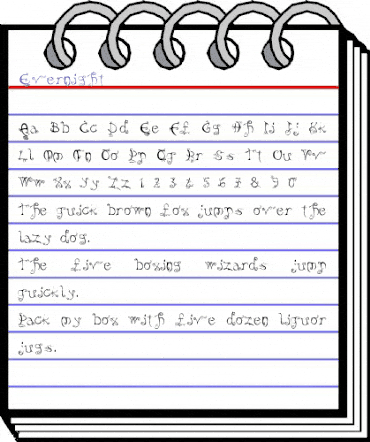 Evernight
Aa Bb Cc Dd Ee Ff Gg Hh Ii Jj Kk
Ll Mm Nn Oo Pp Qq Rr Ss Tt Uu Vv
Ww Xx Yy Zz 1 2 3 4 5 6 7 8 9 0
The quick brown fox jumps over the
lazy dog.
The five boxing wizards jump
quickly.
Pack my box with five dozen liquor
jugs.